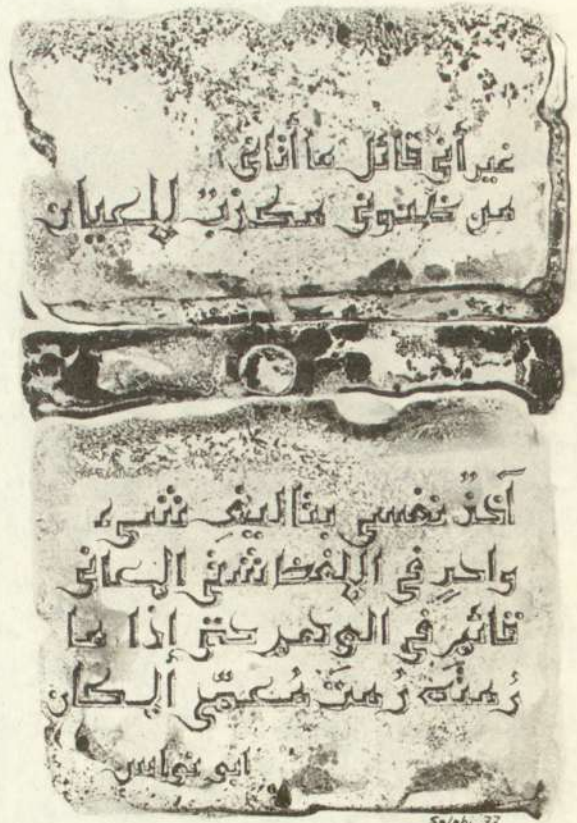 غير أني قائل ما أتاني
من ظنوني مكذبٌ للعيان
آخذٌ نفسي بتاليفِ شيء
واحدٍ في اللفظ شتى المعاني
قائمٍ في الوهم حتى إذا ما
رُمتُه رُمتُ مُعمّى المكان
ابو نواس
Salahi 77